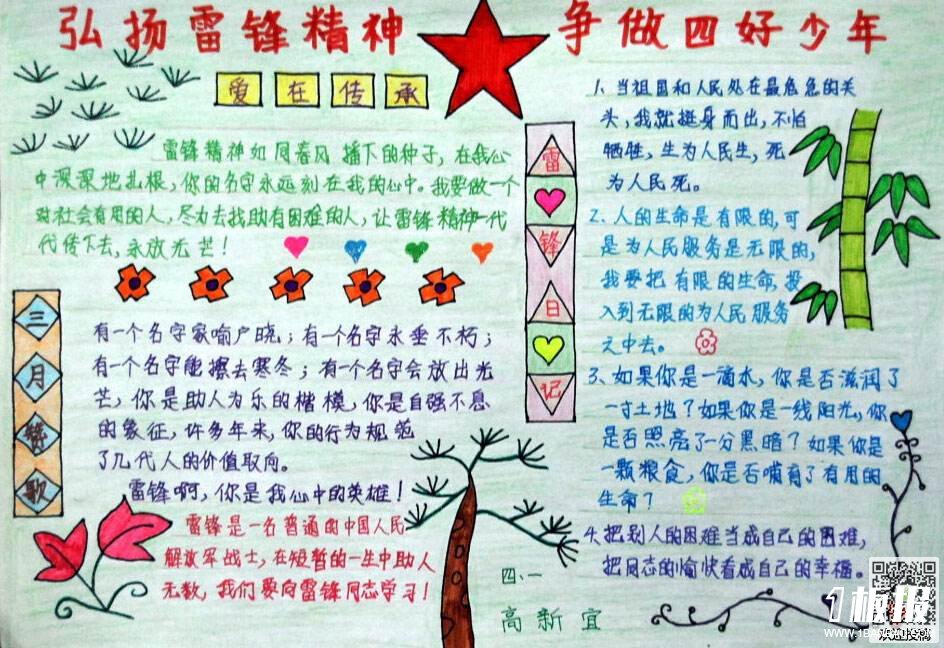 弘扬雷锋精神 争做四好少年
爱在传承
雷锋精神如同春风播下的种子，在我心
中深深地扎根，你的名字永远刻在我的心中。我要做一个
对社会有用的人，尽力去找助有困难的人，让雷锋精神一代
代传下去，永放光芒！
三月赞歌
有一个名字家喻户晓；有一个名字永垂不朽；
有一个名字能擦去寒冬；有一个名字会放出光
芒，你是助人为乐的楷模，你是自强不息
的象征，许多年来，你的行为规范
了几代人的价值取向。
雷锋啊，你是我心中的英雄！
雷锋是一名普通的中国人民
解放军战士，在短暂的一生中助人
无数，我们要向雷锋同志学习！
雷锋日记
1、当祖国和人民处在最危急的关
头，我就挺身而出，不怕
牺牲，生为人民生，死
为人民死。
2、人的生命是有限的，可
是为人民服务是无限的，
我要把有限的生命，投
入到无限的为人民服务
之中去。
3、如果你是一滴水，你是否滋润了
一寸土地？如果你是一线阳光，你
是否照亮了一分黑暗？如果你是
一颗粮食，你是否哺育了有用的
生命？
4、把别人的困难当成自己的困难，
把同志的愉快看成自己的幸福。
四、一
高新宜
1板报
WWW.1BANBAO.COM